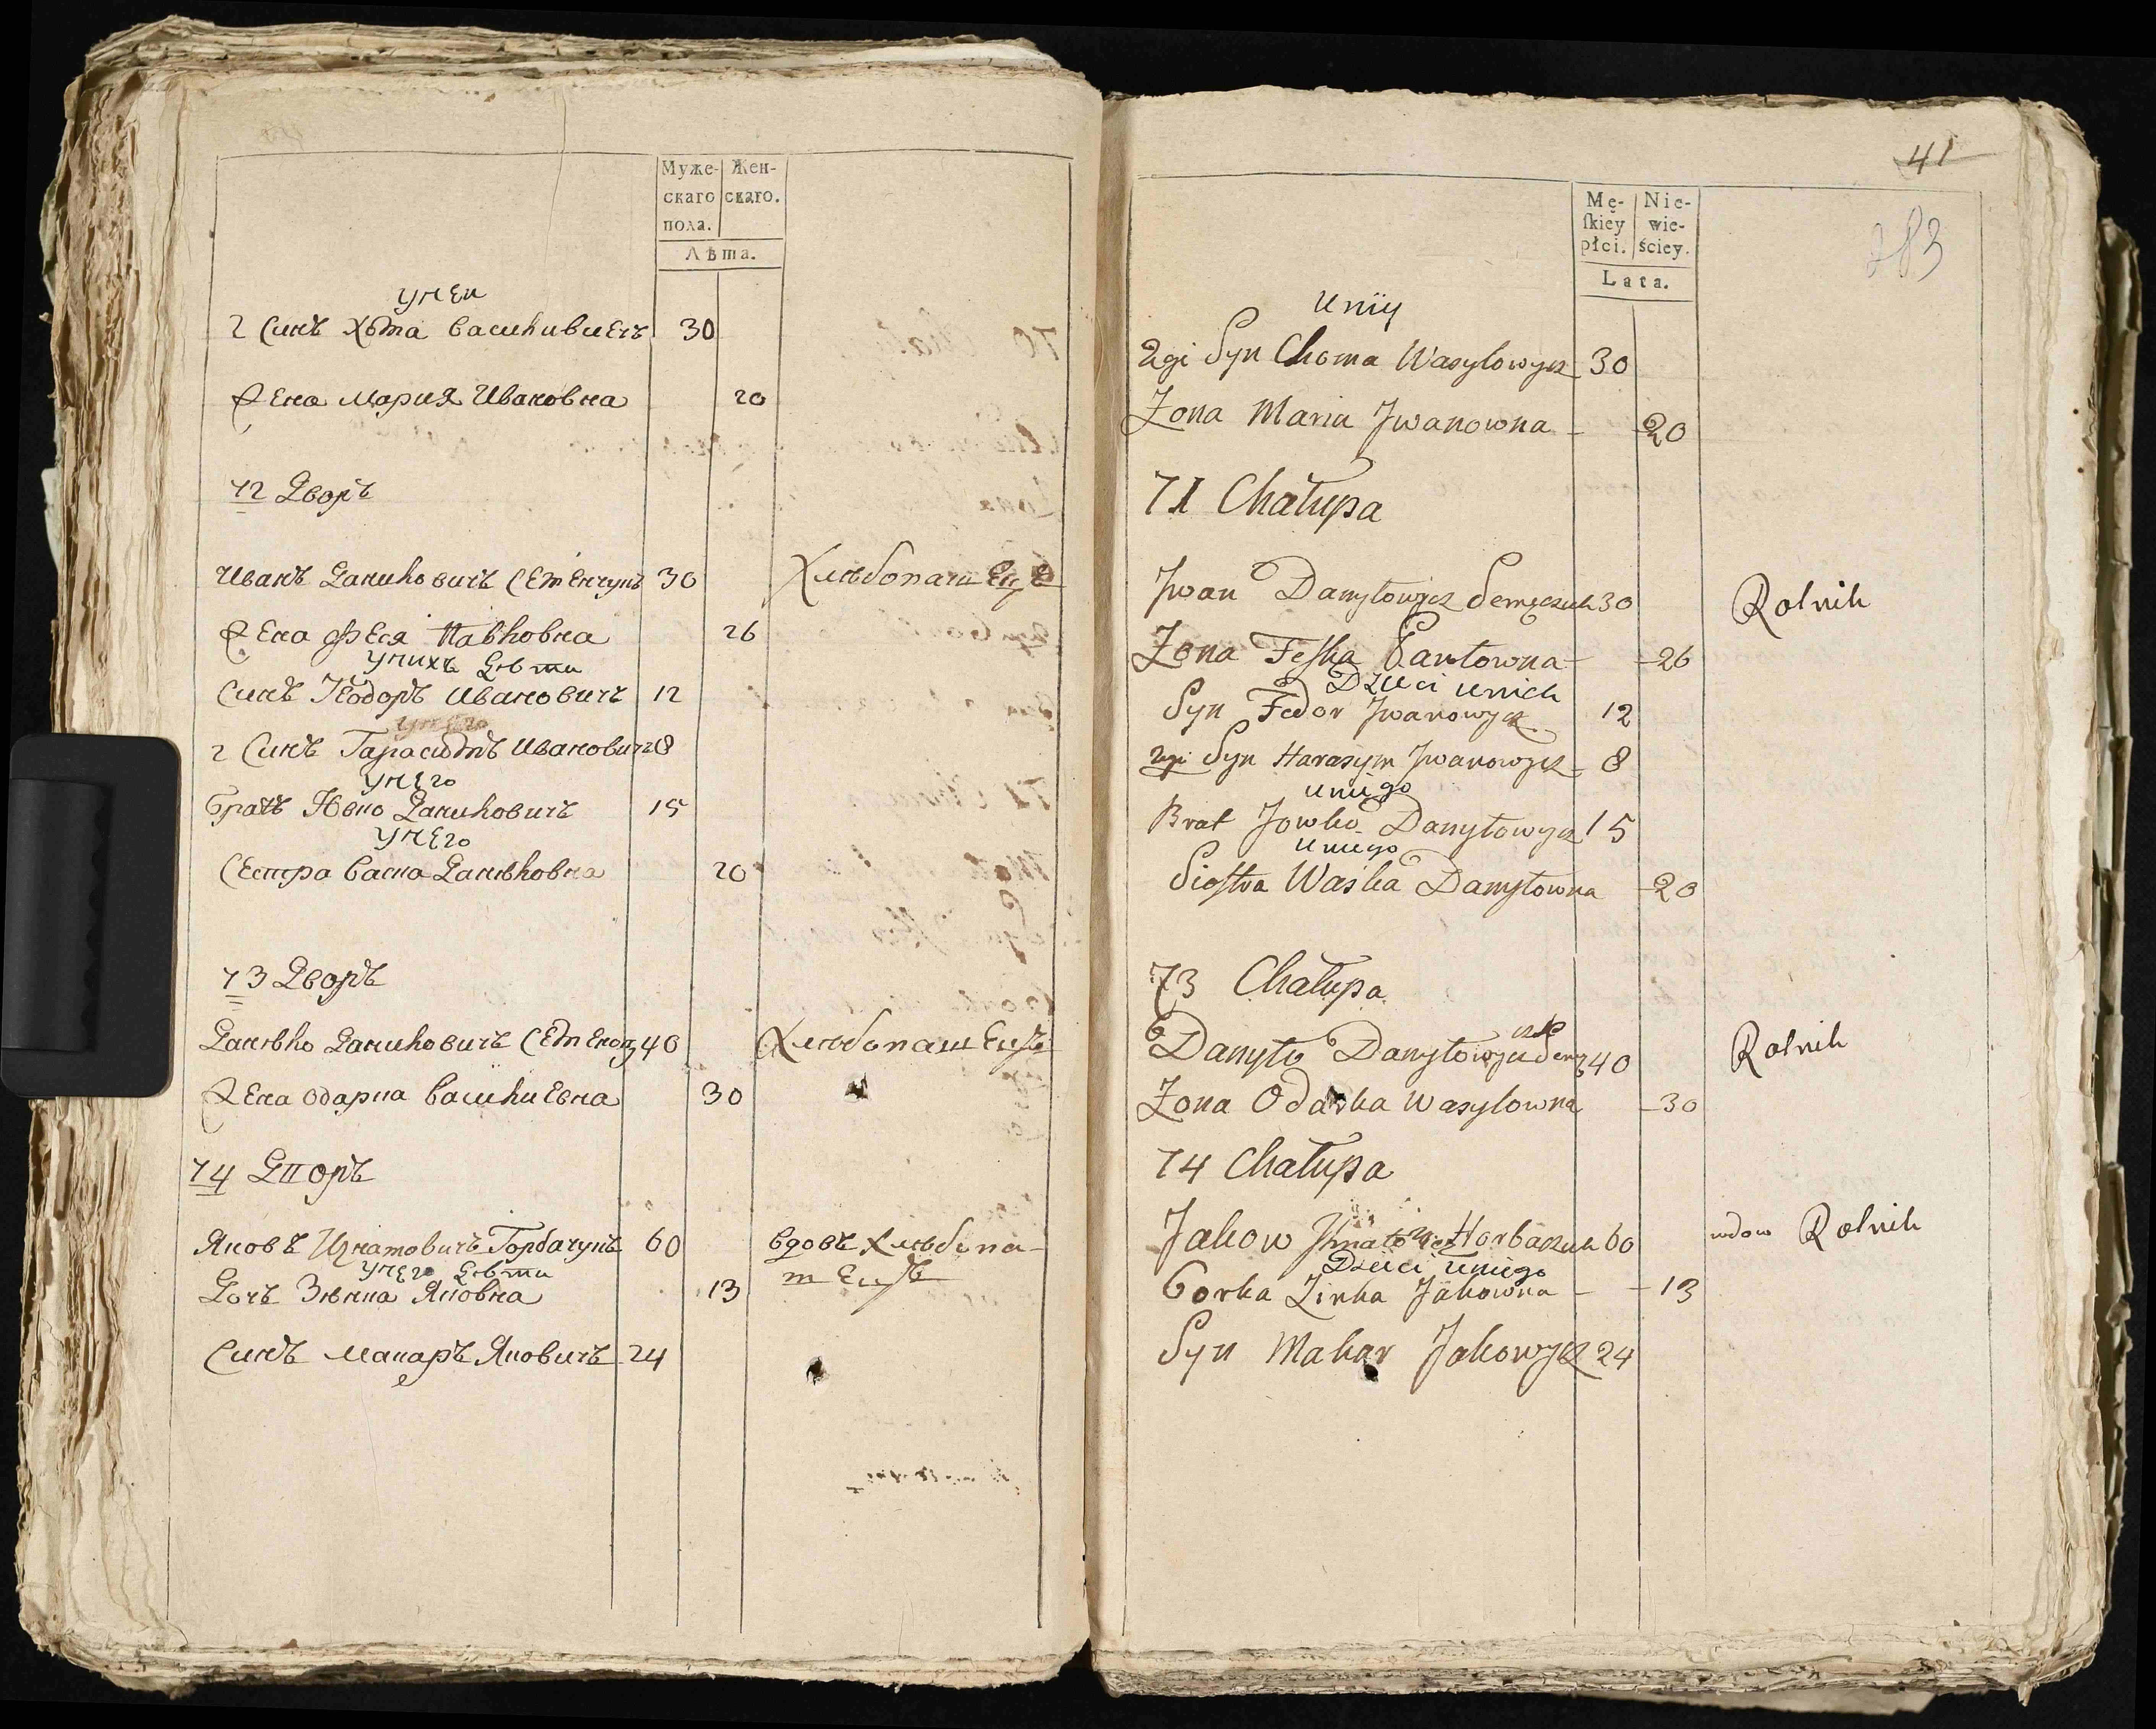 Муже- Жен-
скаго скаго.
пола.
Лѣта.
у ней
2 Синъ Хома Василивичъ 30
Жена Мария Ивановна 20
72 Дворъ
Иванъ Данилович Семенчукъ 30 Хлѣбопашецъ
Жена Феся Павловна 26
у нихъ дѣти
Синъ Теодоръ Ивановичъ 12
у него
2 Синъ Гарасимъ Иванович 8
у него
Братъ Ювко Даниловичъ 15
у него
Сестра Васка Данѣловна 20
73 Дворъ
Данѣло Даниловичъ Семенюк 40 Хлѣбопашецъ
Жена Одарка Василиевна 30
74 Дворъ
Яковъ Игнатовичъ Горбачукъ 60 вдовъ Хлѣбопа-
шецъ
у него дѣти
Дочъ Зѣнка Яковна 13
Синъ Макаръ Яковичъ 24
41
283
Mę- Nie-
ſkiey wie-
płci. ściey.
Lata.
u niiy
2gi Syn Choma Wasylowycz 30
Zona Maria Jwanowna - 20
71 Chałupa
Jwan Danyłowycz Semęczuk 30 Rolnik
Zona Feſka Pawłowna - 26
Dzieci u nich
Syn Fedor Jwanowycz 12
2gi Syn Harasym Jwanowycz 8
u niego
Brat Jowko Danyłowycz 15
u niego
Sioſtra Waska Danyłowna 20
73 Chałupa
Danyło Danyłowycz Sem 40 Rolnik
Zona Odarka Wasylowna - 30
74 Chałupa
Jakow Jhnatowicz Horbaczuk 60 wdow Rolnik
Dzieci u niego
Corka Zinka Jakowna - 13
Syn Makar Jakowycz 24